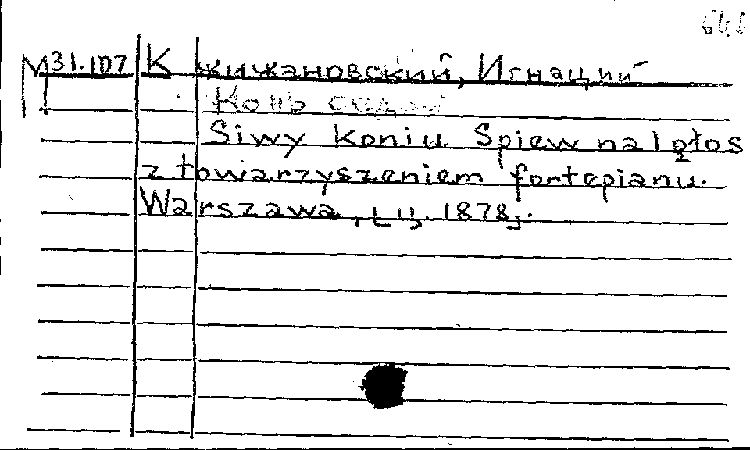 М 31.107 К жижановский, Игнаций
Конь
Siwy koniu Spiew na 1 głos
z towarzyszeniem fortepianu.
Warszawa, [ц. 1878].